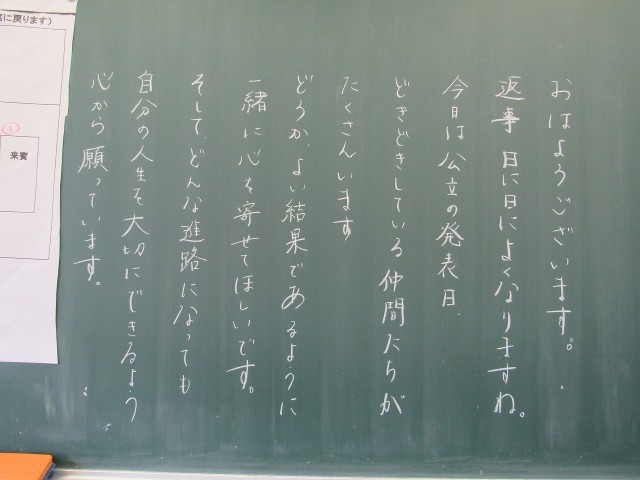 おはようございます。
返事 日に日によくなりますね。
今日は公立の発表日.
どきどきしている仲間たちが
たくさんいます
どうか、よい結果であるように
一緒に心を寄せてほしいです。
そして、どんな進路になっても
自分の人生を大切にできるよう
心から願っています。
に戻ります)
来賓